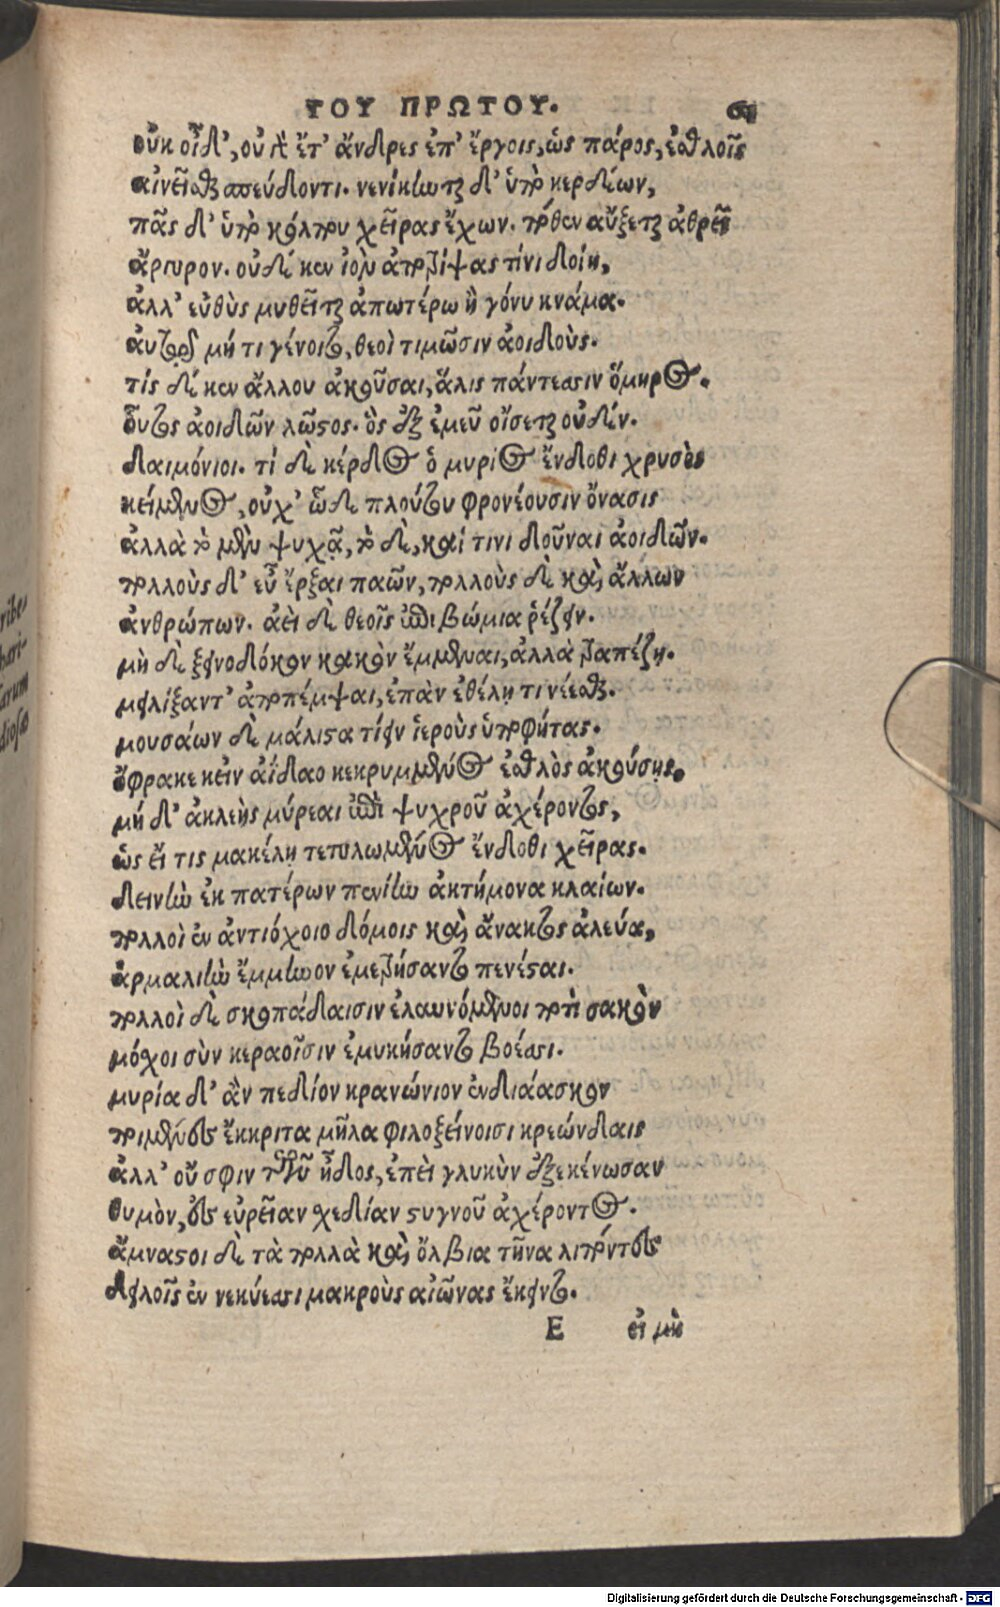 ΤΟΥ ΠΡΩΤΟΥ.
οὐκ οἶδ', οὐ γὰρ ἔτ' ἄνδρες ἐπ' ἔργοις, ὡς πάρος, ἐσθλοῖς
αἰνεῖσθαι σπεύδοντι. νενίκηνται δ' ὑπὸ κερδέων,
πᾶς δ' ὑπὸ κόλπου χεῖρας ἔχων. πόθεν αὔξεται ἀθρεῖ
ἄργυρον. οὐδέ κεν ἰὸν ἀποτρίψας τίνι δοίη,
ἀλλ' εὐθὺς μυθεῖται ἀπωτέρω ἢ γόνυ κνάμα.
αὐτῷ μή τι γένοιτο, θεοὶ τιμῶσιν ἀοιδοὺς.
τίς δέ κεν ἄλλου ἀκοῦσαι, ἅλις πάντεσσιν ὅμηρος.
οὗτος ἀοιδῶν λῶστος. ὃς ἐξ ἐμεῦ οἴσεται οὐδέν.
δαιμόνιοι. τί δὲ κέρδος ὁ μυρίος ἔνδοθι χρυσὸς
κείμενος, οὐχ' ὧδε πλούτου φρονέουσιν ὄνασις
ἀλλὰ τὸ μὲν ψυχᾷ, τὸ δὲ, καί τινι δοῦναι ἀοιδῶν.
πολλοὺς δ' εὖ ἔρξαι παῶν, πολλοὺς δὲ καὶ ἄλλων
ἀνθρώπων. ἀεὶ δὲ θεοῖς ἐπὶ βώμια ῥέζειν.
μὴ δὲ ξεινοδόκον κακὸν ἔμμεναι, ἀλλὰ τραπέζῃ.
μειλίξαντ' ἀποπέμψαι, ἐπὰν ἐθέλῃ τι νέεσθαι.
μουσάων δὲ μάλιστα τίειν ἱεροὺς ὑποφήτας.
ὄφρα κε κεὶν ἀΐδαο κεκρυμμένος ἐσθλὸς ἀκούσῃς.
μή δ' ἀκλεὴς μύρεαι ἐπὶ ψυχροῦ ἀχέροντος,
ὡς εἴ τις μακέλῃ τετυλωμένος ἔνδοθι χεῖρας.
δεινὴν ἐκ πατέρων πενίην ἀκτήμονα κλαίων.
πολλοὶ ἐν ἀντιόχοιο δόμοις καὶ ἄνακτος ἀλεύα,
ἁρμαλιὴν ἔμμηνον ἐμετρήσαντο πενέσται.
πολλοὶ δὲ σκοπάδαισιν ἐλαυνόμενοι ποτὶ σακὸν
μόχοι σὺν κεραοῖσιν ἐμυκήσαντο βοέσσι.
μυρία δ' ἂν πεδίον κρανώνιον ἐνδιάασκον
ποιμένες ἔκκριτα μῆλα φιλοξείνοισι κρεώνδαις
ἀλλ' οὔ σφιν τῶν ἦδος, ἐπεὶ γλυκὺν ἐξεκένωσαν
θυμὸν, ἐς εὐρεῖαν σχεδίαν στυγνοῦ ἀχέροντος.
ἄμναστοι δὲ τὰ πολλὰ καὶ ὄλβια τῆνα λιπόντες
δειλοῖς ἐν νεκύεσσι μακροὺς αἰῶνας ἔκειντο.
E εἰ μὴ
Digitalisierung gefördert durch die Deutsche Forschungsgemeinschaft - DFG